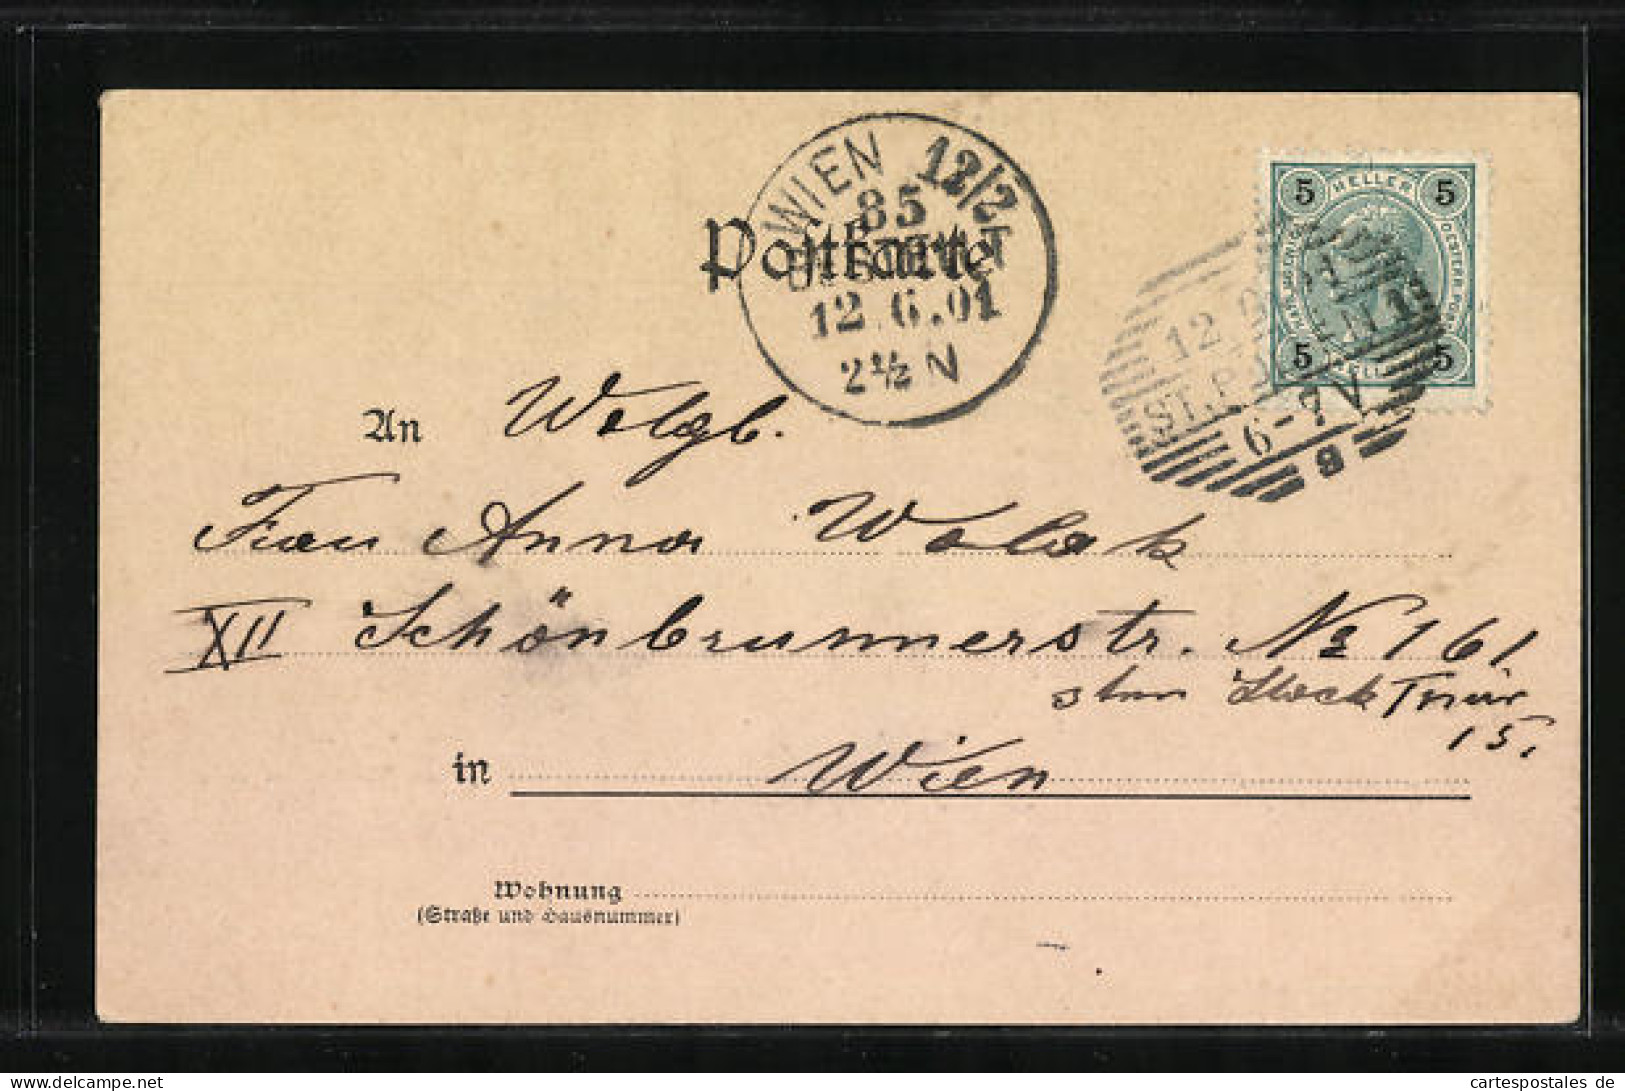 WIEN 12/2
85
BESTELLT
12.6.01
2½ N
Postkarte
5 HELLER 5
5 5
12
ST.P
6-7V
B
An Wolgb.
Frau Anna Wolak
XII Schönbrunnerstr. No 161
Stock
15.
in Wien
Wohnung
(Straße und Hausnummer)
cartespostales de